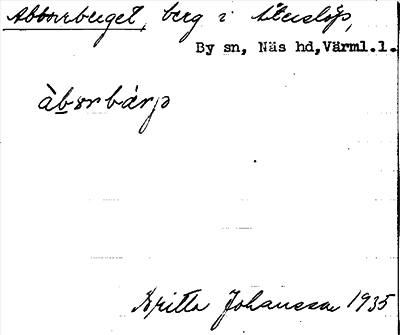 Abborrberget, berg i
By sn, Näs hd, Värml. l.
àbơrbärjə
Britta Johansson 1935